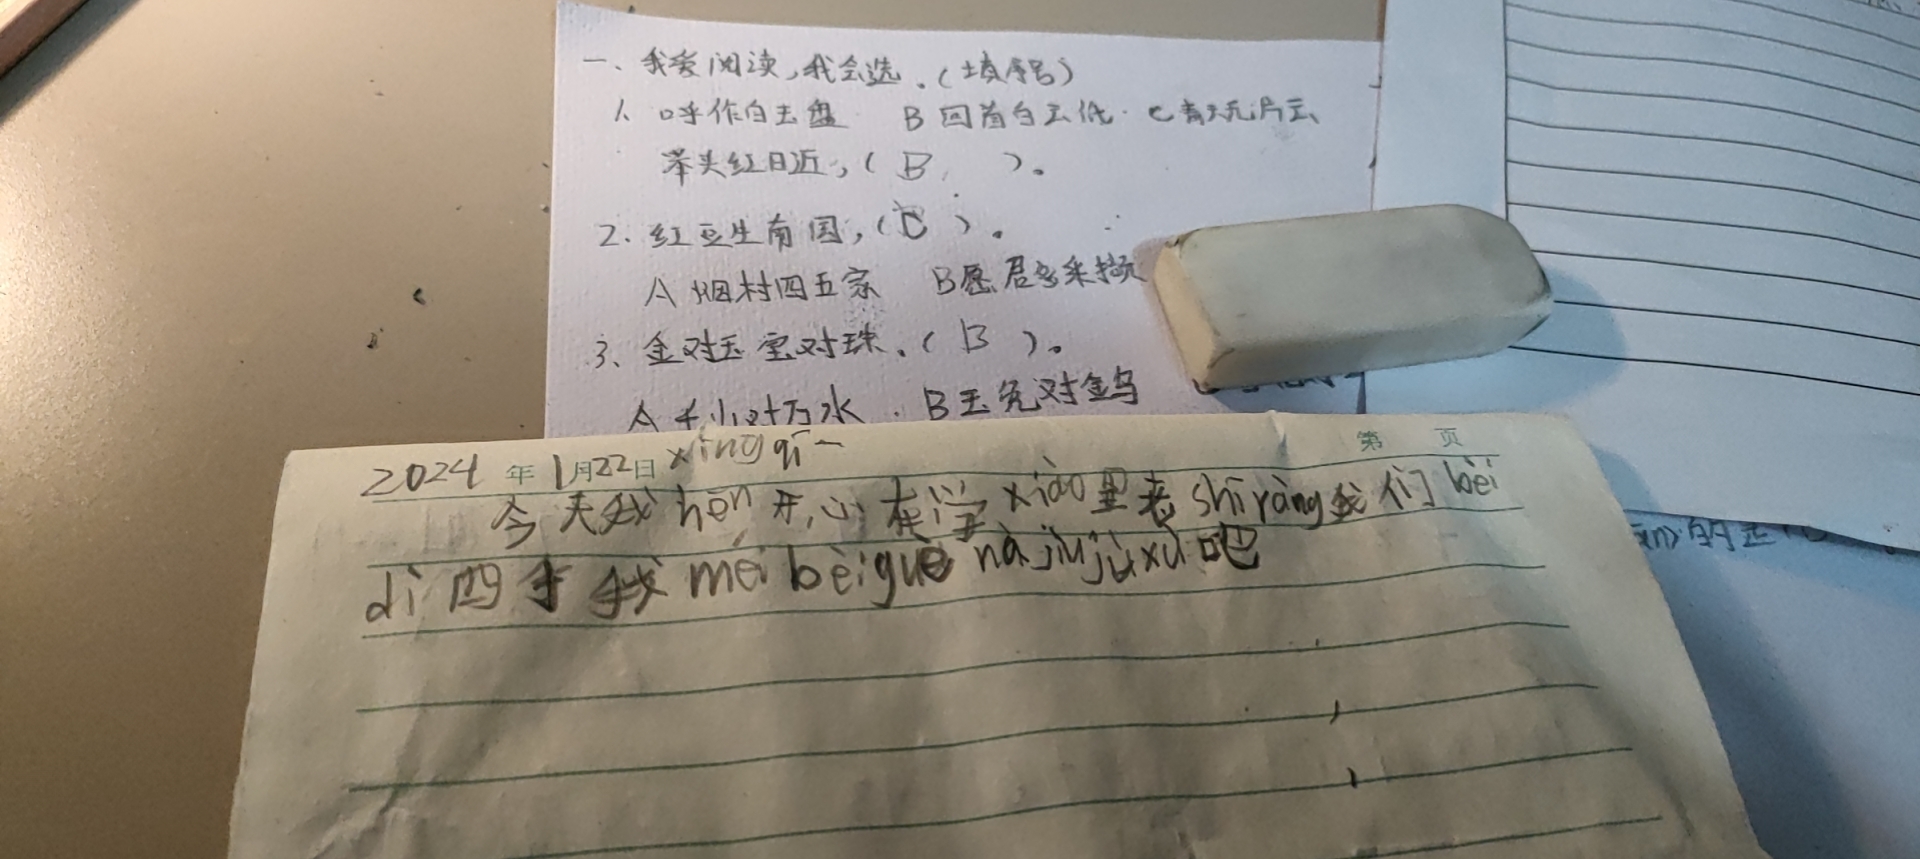 一、我爱阅读,我会选.(填序号)
1、呼作白玉盘 B回首白云低. C青天无片云、
举头红日近,( B )。
2.红豆生南国,( C )。
A烟村四五家 B愿君多采撷
3、金对玉宝对珠.( B )。
A千山对万水. B玉兔对金乌
2024年1月22日xīngqī一 第 页
今天我hěn开心在学xiào里老shīràng我们bèi
dì四千我méibèiguò nàjiùjìxù吧